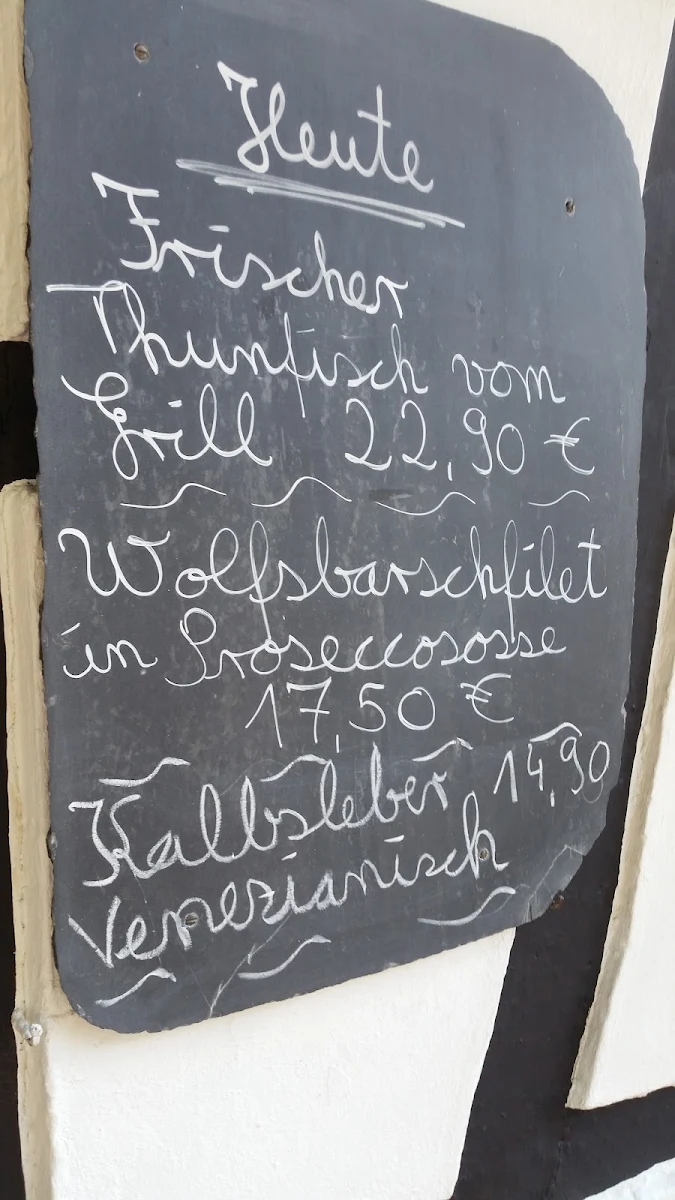 Heute
Frischer
Thunfisch vom
Grill 22,90 €
Wolfsbarschfilet
in Proseccososse
17,50 €
Kalbsleber 14,90
Venezianisch